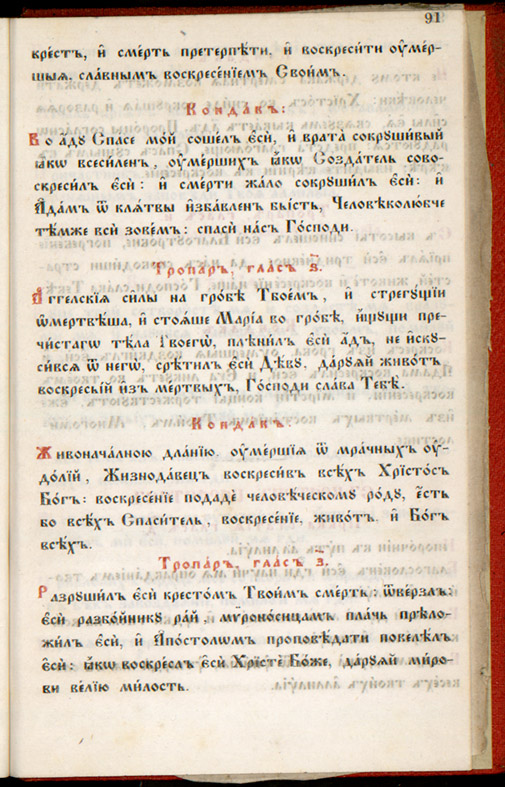 91
кре́стъ, и҆ сме́рть претерпѣ́ти, и҆ воскреси́ти оу҆ме́р-
шыѧ, сла́внымъ воскресе́нїемъ Свои́мъ.
Конда́къ:
Во а҆́дꙋ Спасе мо́й соше́лъ є҆сѝ, и҆ врата̀ сокрꙋши́вый
ꙗ҆́кѡ всеси́ленъ, оу҆ме́ршихъ ꙗ҆́кѡ Созда́тель сово-
скреси́лъ є҆сѝ: и҆ сме́рти жа́ло сокрꙋши́лъ є҆сѝ: и҆
А҆да́мъ ѿ клѧ́твы и҆зба́вленъ бы́сть, Человѣколю́бче
тѣ́мже всѝ зове́мъ: спасѝ на́съ Го́споди.
Тропа́р, гла́съ ѕ҃.
А҆́ггелскїѧ си́лы на гро́бѣ Твое́мъ, и҆ стрегꙋ́щїи
ѡ҆мертвѣ́ша, и҆ стоѧ́ше Марі́а во гро́бѣ, и҆́щꙋщи пре-
чи́стагѡ тѣ́ла Твоегѡ̀, плѣни́лъ є҆сѝ а҆́дъ, не и҆скꙋ-
си́всѧ ѿ негѡ̀, срѣ́тилъ є҆сѝ Дѣ́вꙋ, да́рꙋѧй живо́тъ,
воскресы́й и҆з ме́ртвыхъ, Го́споди сла́ва Тебѣ̀.
Конда́къ.
Живонача́лною дла́нїю, оу҆ме́ршїѧ ѿ мра́чныхъ оу҆-
до́лїй, Жизнода́вецъ воскреси́въ всѣ́хъ Хрїсто́съ
Бо́гъ: воскресе́нїе подадѐ человѣ́ческомꙋ ро́дꙋ, є҆́сть
бо всѣ́хъ Спаси́тель, воскресе́нїе, живо́тъ, и҆ Бо́гъ
всѣ́хъ.
Тропа́р, гла́съ з҃.
Разрꙋши́лъ є҆сѝ кресто́мъ Твои́мъ сме́рть: ѿве́рзлъ
є҆сѝ разбо́йникꙋ ра́й, мѷроно́сицамъ пла́чь прѣло-
жи́лъ є҆сѝ, и҆ А҆по́столѡмъ проповѣ́дати повелѣ́лъ
є҆сѝ: ꙗ҆́кѡ воскре́слъ є҆сѝ Хрїстѐ Бо́же, да́рꙋѧй ми́ро-
ви ве́лїю ми́лость.